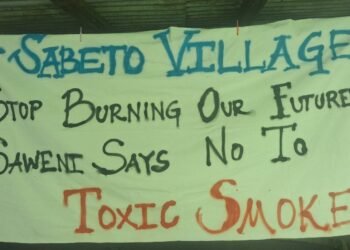 Sabeto Village
Stop Burning Our Future
Saweni Says No To
Toxic Smoke